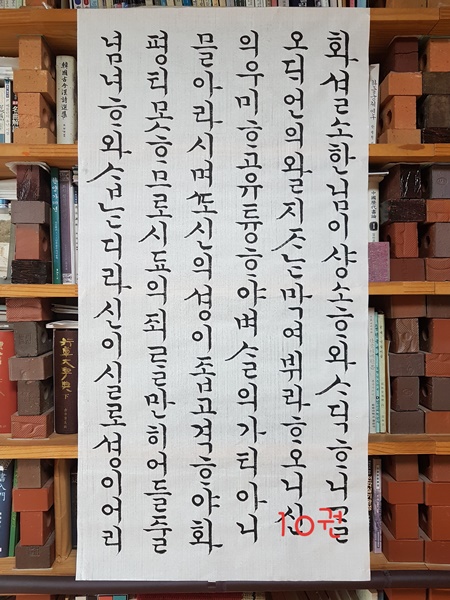 화셜소한님이샹소ᄒᆞ와ᄉᆞ딕ᄒᆞ니ᄀᆞᆯ
오ᄃᆡ언의왈지ᄌᆞᄂᆞᆫ막여뷔라ᄒᆞ오니신
의우미ᄒᆞ고유튱ᄒᆞ야벼ᄉᆞᆯ의가티아니
믈아라시며ᄯᅩ신의셩이좁고격ᄒᆞ야화
평티못ᄒᆞ므로시됴의죄ᄅᆞᆯ만히어들줄
념녀ᄒᆞ와ᄉᆞᆸᄂᆞᆫ디라신이실로셩이어리
10권